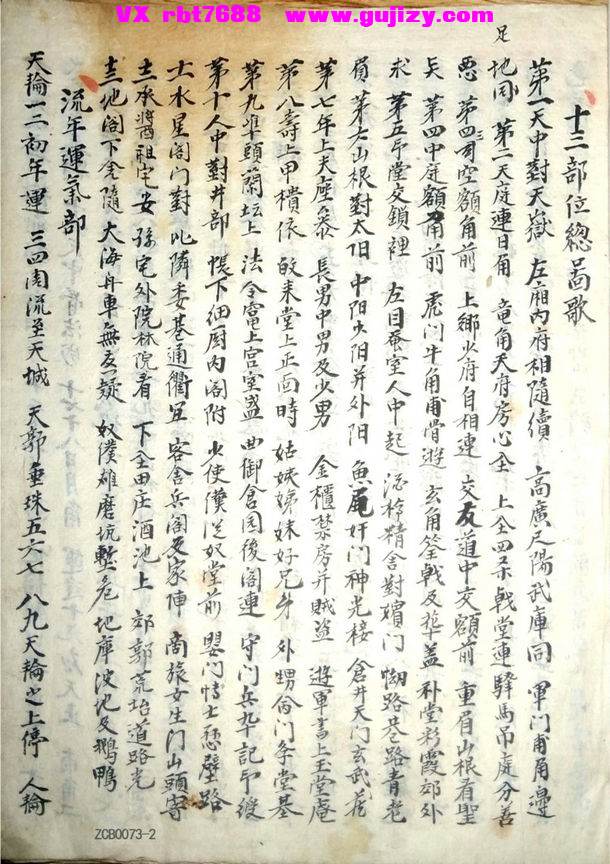 VX rbt7688 www.gujizy.com
十三部位總啚歌
第一天中對天嶽 左廂內府相隨續 高廣尺陽武庫同 軍门甫角邊
足
地同 第二天庭連日角 竜角天府房心全 上全四杀戟堂連 驛馬吊處分善
惡 第四三司空額角前 上鄉少府自相連 交友道中交額前 重眉山根看聖
矣 第四中庭額甬前 虎门牛角甫骨遊 玄角筌戟及盖 补堂彩霞郊外
求 第五印堂交鎖裡 左目蚕室人中起 酒樽精舍對嬪门 路巷路青老
眉 第六山根對太阳 中阳少阳并外阳 魚尾奸门神光接 倉井天门玄武荒
第七年上夫座参 長男中男及少男 金櫃禁房并贼盗 遊軍書上玉堂庵
第八壽上甲樻依 皈来堂上正面時 姑姨娣妹好兄弟 外甥门堂基
第九準頭蘭坛上 法令竈上宫室盛 曲御倉园後阁連 守门兵卒記印绶
第十人中對井部 帳下细厨内阁附 火使僕從奴堂前 嬰门博士悬壁路
土水星阁门對 比隣委巷通衢至 客舍兵阁及家陣 商旅女生门山頭寄
承醬祖宅安 孫宅外院林院看 下全田庄酒池上 郊郭荒坮道路光
地阁下全隨 大海舟車無友疑 奴僕雄磨坑塹危 地庫波地及鵝鴨
流年運氣部
天輪一二初年運 三四周流至天城 天郭垂珠五六七 八九天輪之上停 人輪
ZCB0073-2